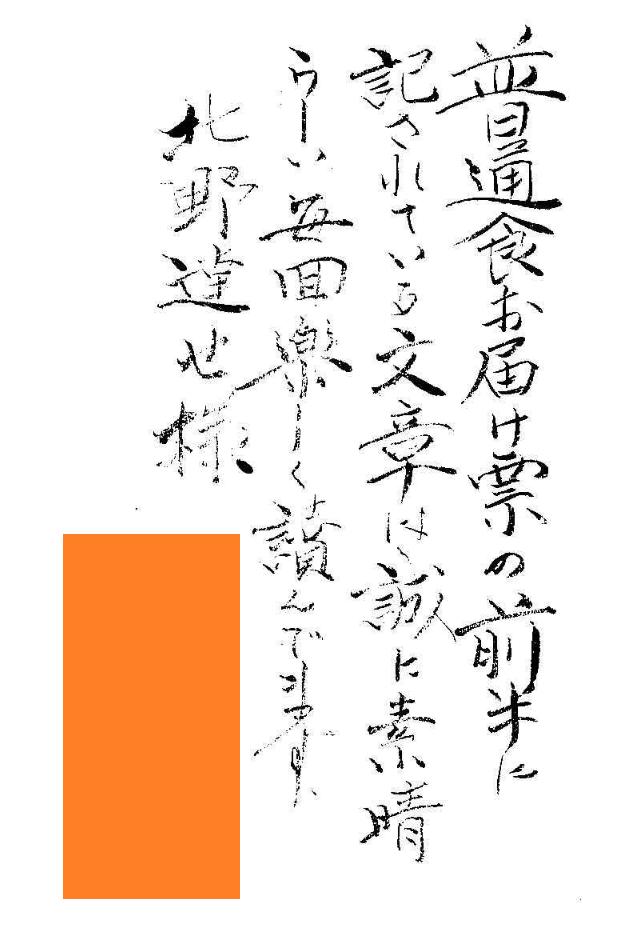 普通食お届け票の前半に
記されている文章は誠に素晴
らしい毎回楽しく讀んで
北野達也様